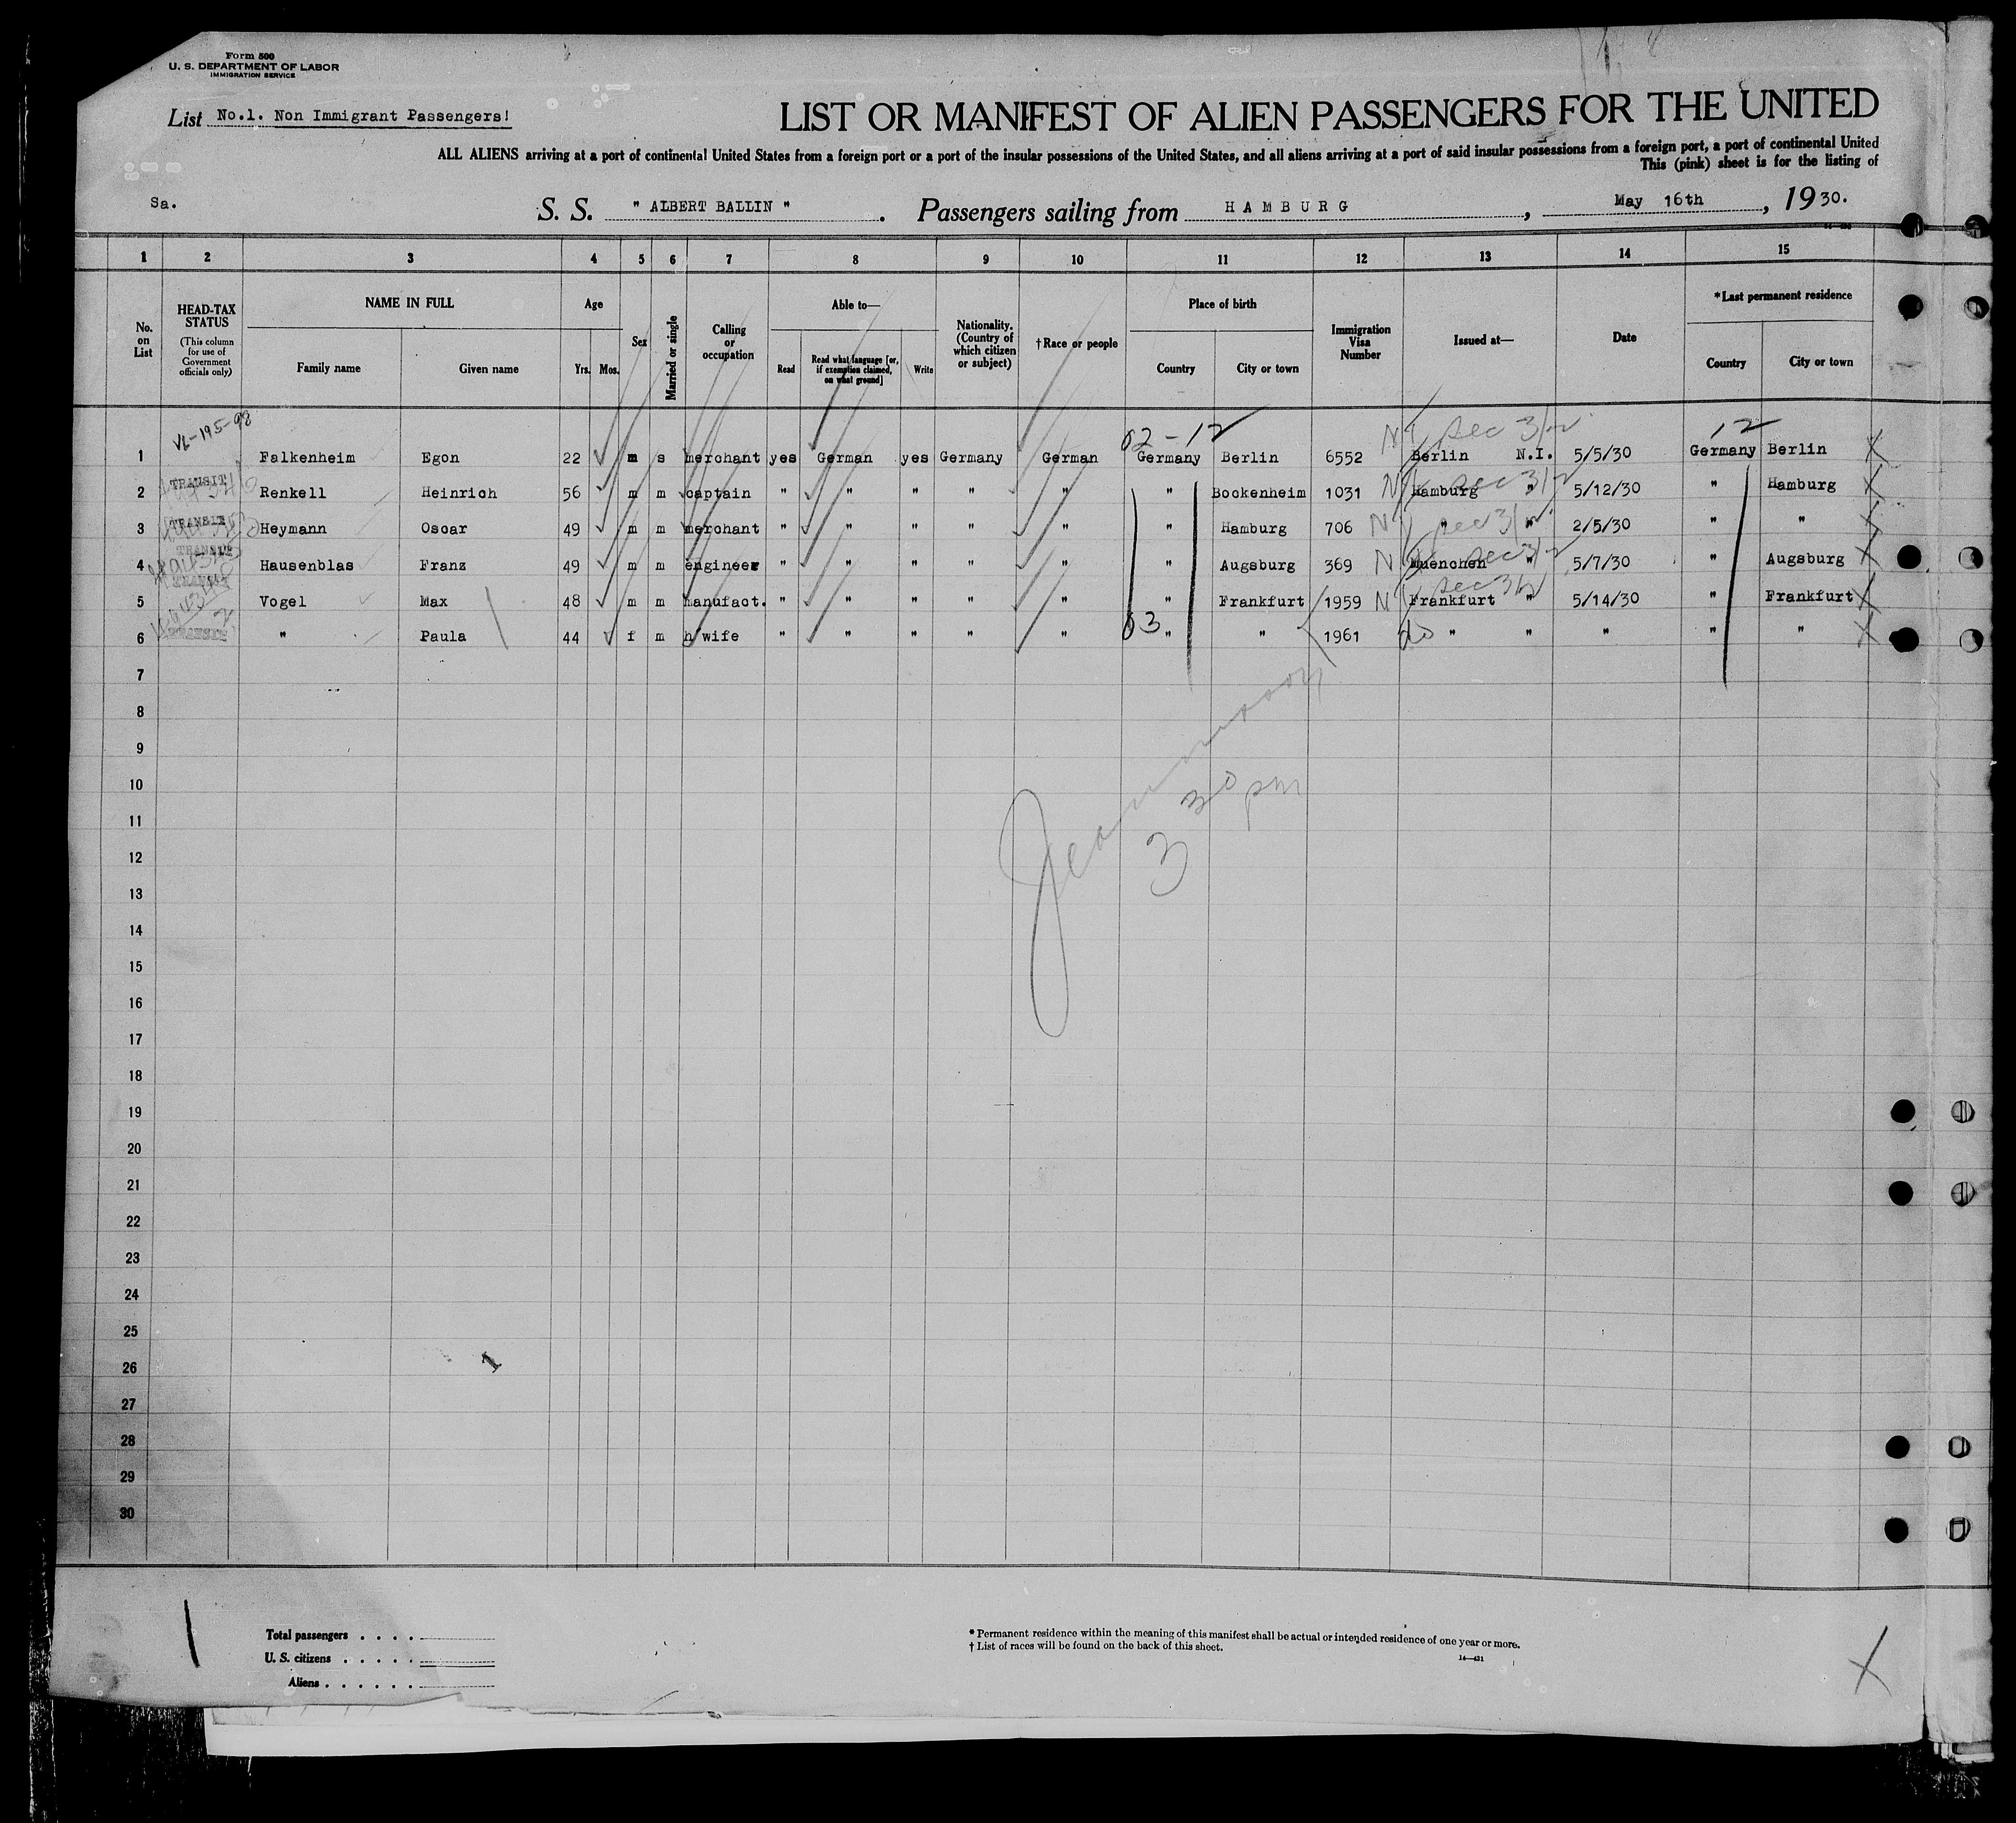 Form 500
U. S. DEPARTMENT OF LABOR
IMMIGRATION SERVICE
List No.1. Non Immigrant Passengers!
LIST OR MANIFEST OF ALIEN PASSENGERS FOR THE UNITED
ALL ALIENS arriving at a port of continental United States from a foreign port or a port of the insular possessions of the United States, and all aliens arriving at a port of said insular possessions from a foreign port, a port of continental United
This (pink) sheet is for the listing of
Sa.
S. S. " ALBERT BALLIN ". Passengers sailing from HAMBURG, May 16th, 1930.
1 2 3 4 5 6 7 8 9 10 11 12 13 14 15
No. on List
HEAD-TAX STATUS
(This column for use of Government officials only)
NAME IN FULL
Family name Given name
Age
Yrs. Mos.
Sex
Married or single
Calling or occupation
Able to—
Read
Read what language [or, if exemption claimed, on what ground]
Write
Nationality. (Country of which citizen or subject)
† Race or people
Place of birth
Country City or town
Immigration Visa Number
Issued at—
Date
*Last permanent residence
Country City or town
VL-195-98
02-12
12
1 Falkenheim Egon 22 m s merchant yes German yes Germany German Germany Berlin 6552 NI sec 3/2 Berlin N.I. 5/5/30 Germany Berlin X
2 TRANSIT Renkell Heinrich 56 m m captain " " " " " " Bockenheim 1031 Hamburg " 5/12/30 " Hamburg X
3 TRANSIT Heymann Oscar 49 m m merchant " " " " " " Hamburg 706 " " 2/5/30 " " X
4 TRANSIT Hausenblas Franz 49 m m engineer " " " " " " Augsburg 369 Muenchen " 5/7/30 " Augsburg X
5 TRANSIT Vogel Max 48 m m manufact. " " " " " " Frankfurt 1959 Frankfurt " 5/14/30 " Frankfurt X
6 TRANSIT " Paula 44 f m h/wife " " " " " 03 " " 1961 do " " " " " X
7
8
9
10
11
12
13
14
15
16
17
18
19
20
21
22
23
24
25
26
27
28
29
30
3 30 pm
1
Total passengers . . . .
U. S. citizens . . . . .
Aliens . . . . . .
* Permanent residence within the meaning of this manifest shall be actual or intended residence of one year or more.
† List of races will be found on the back of this sheet.
14—431
X